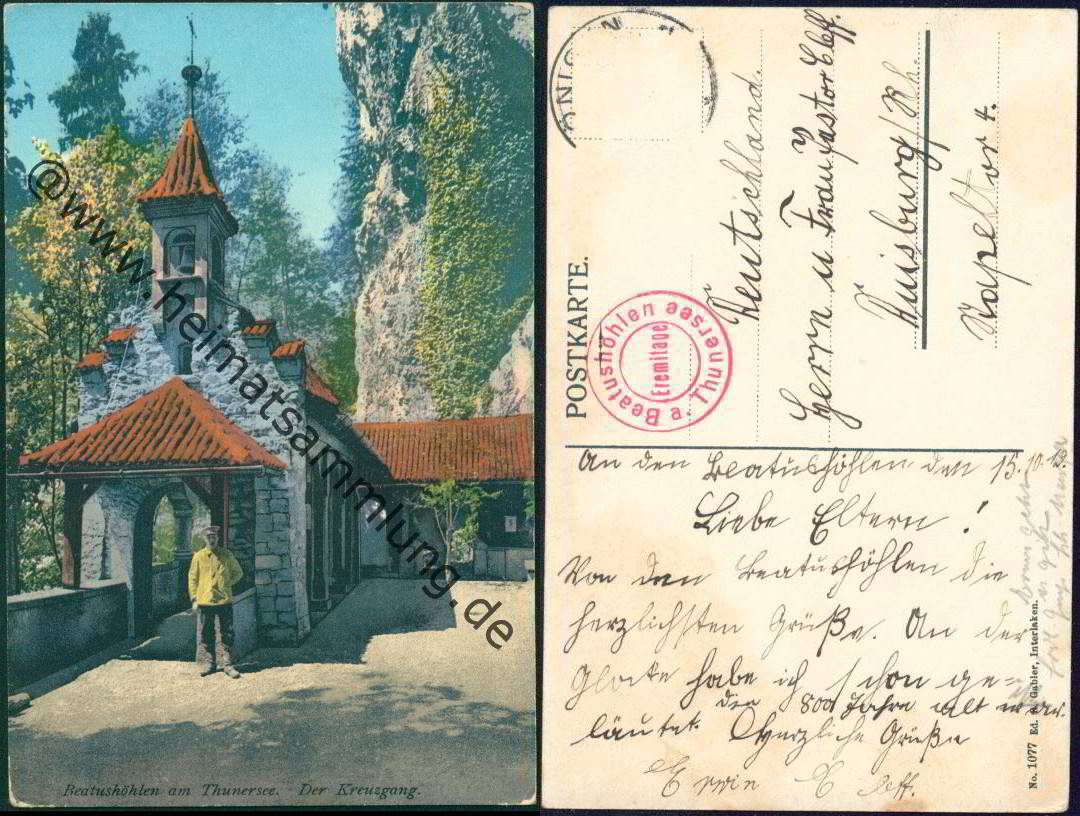 @www.heimatsammlung.de
Beatushöhlen am Thunersee. Der Kreuzgang.
POSTKARTE.
Beatushöhlen a Thunersee
Eremitage
Deutschland.
Herrn u Frau Pastor Cleff.
Duisburg/Rh.
Kapellstr 4.
An den Beatushöhlen den 15. 10. 13.
Liebe Eltern!
Von den Beatushöhlen die
herzlichsten Grüße. An der
Glocke habe ich schon ge=
läutet die 800 Jahre alt war.
Herzliche Grüße
Erwin Cleff.
No. 1077 Ed. Gabler, Interlaken.